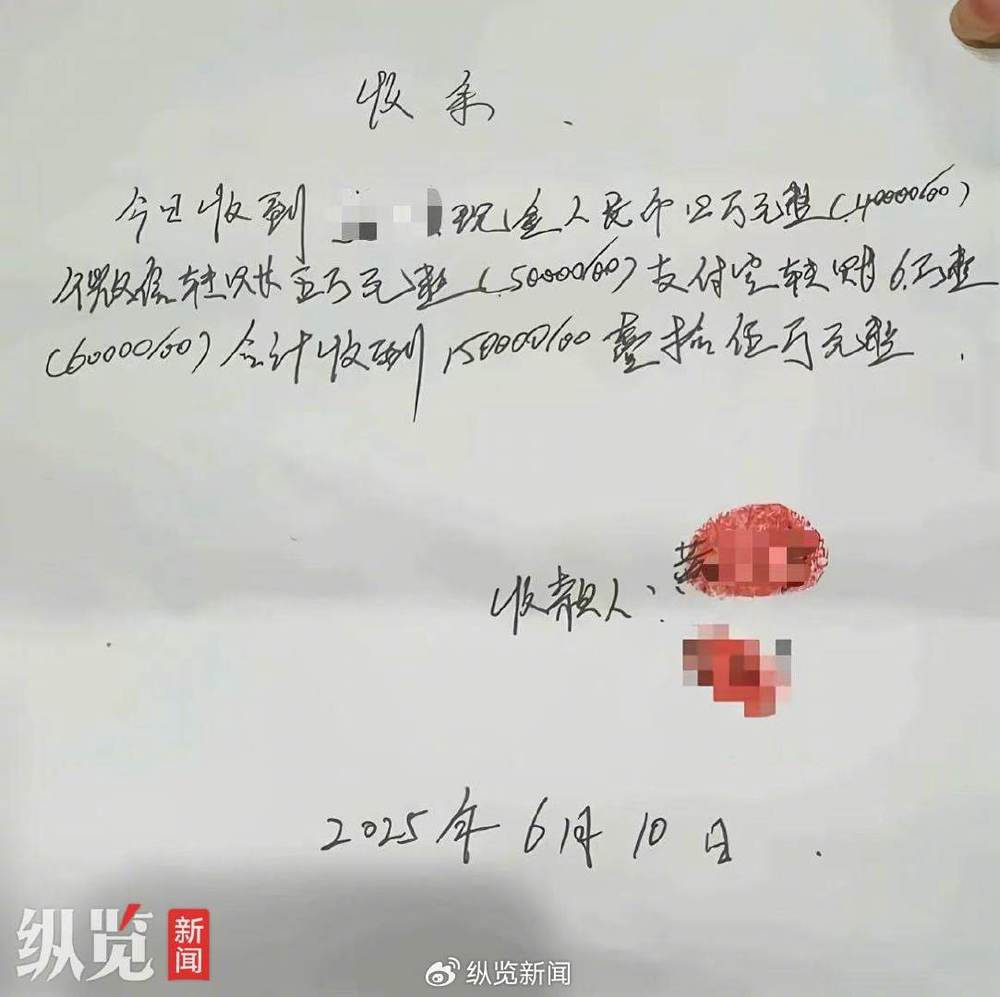 收条.
今日收到 现金人民币四万元整(40000/00)
微信转账五万元整(50000/00)支付宝转账6万整
(60000/00)合计收到150000/00壹拾伍万元整.
收款人:黄
2025年6月10日.
纵览新闻
纵览新闻